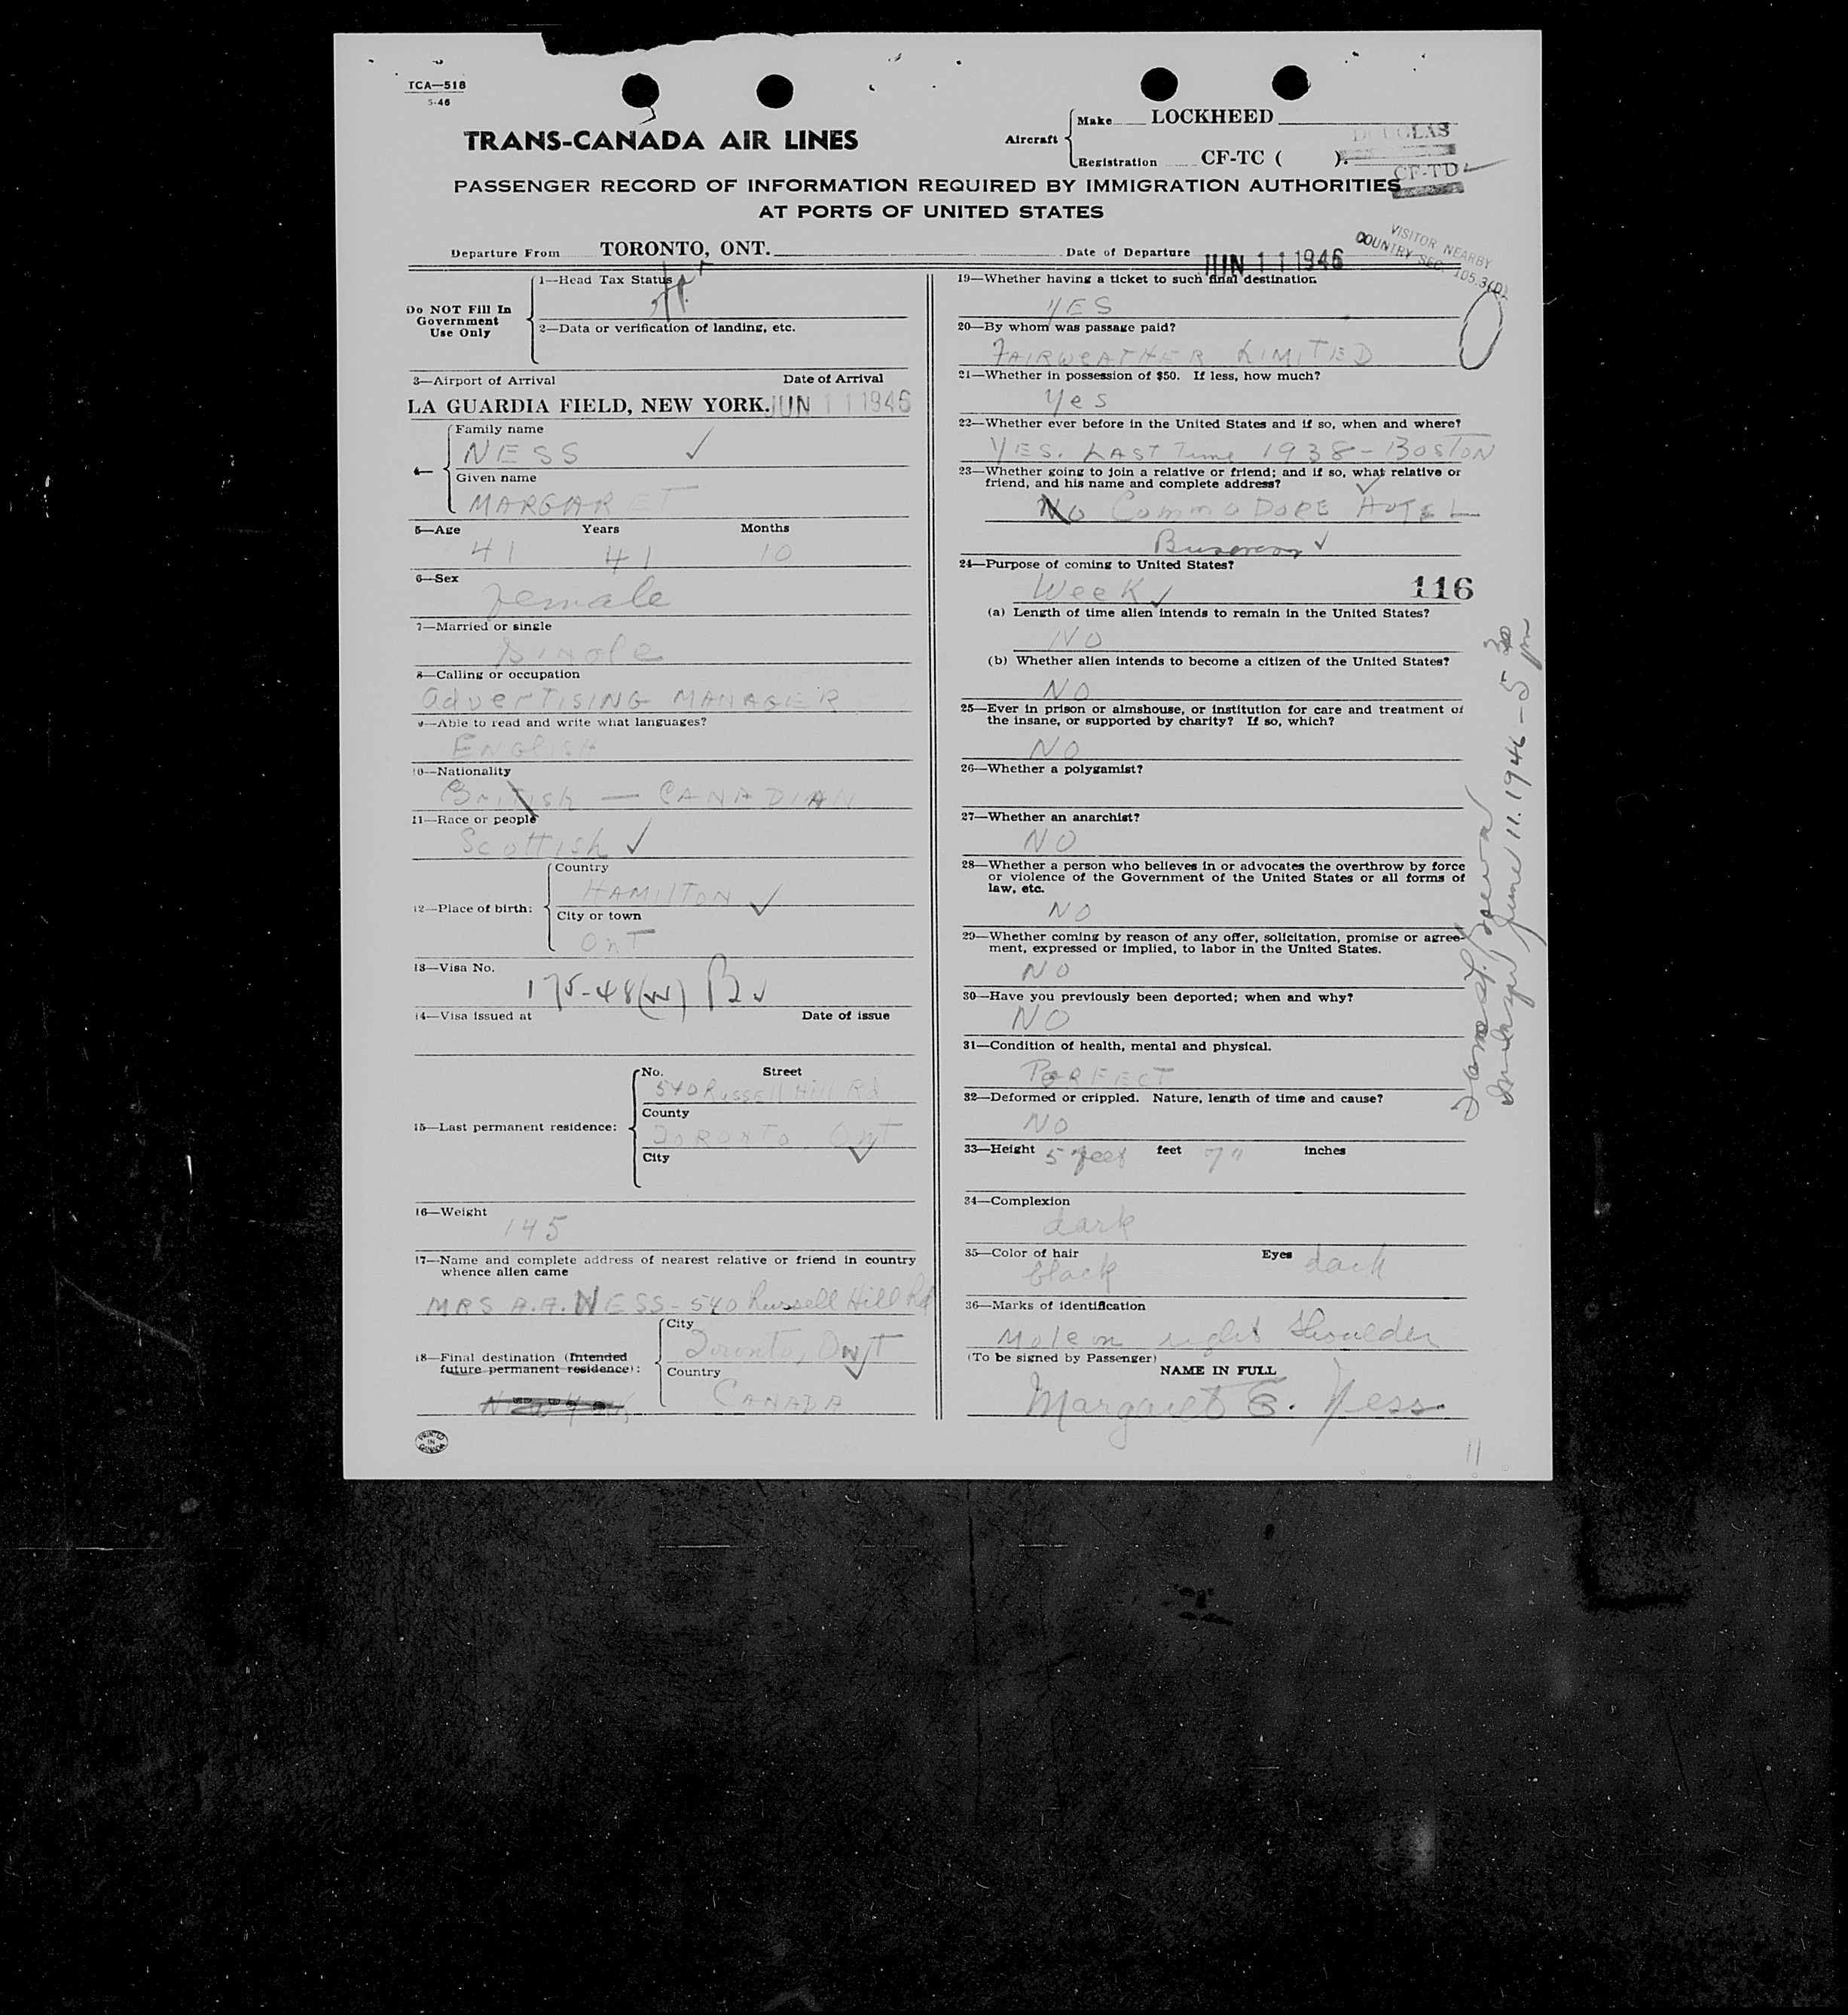 TCA—518
5-46
TRANS-CANADA AIR LINES
Aircraft
Make LOCKHEED
Registration CF-TC ( ).
DOUGLAS
CF-TD
PASSENGER RECORD OF INFORMATION REQUIRED BY IMMIGRATION AUTHORITIES
AT PORTS OF UNITED STATES
Departure From TORONTO, ONT. Date of Departure JUN 11 1946
VISITOR NEARBY
COUNTRY SEC. 105.3(D)
Do NOT Fill In
Government
Use Only
1—Head Tax Status
2—Data or verification of landing, etc.
3—Airport of Arrival Date of Arrival
LA GUARDIA FIELD, NEW YORK. JUN 11 1946
4—
Family name
NESS
Given name
MARGARET
5—Age Years Months
41 41 10
6—Sex
Female
7—Married or single
Single
8—Calling or occupation
AdverTISING MANAGER
9—Able to read and write what languages?
ENGlisH
10—Nationality
British — CANADIAN
11—Race or people
Scottish
12—Place of birth:
Country
HAMILTON
City or town
OnT
13—Visa No.
175-48(W) B
14—Visa issued at Date of issue
15—Last permanent residence:
No. Street
540 Russell Hill Rd
County
TORONTO OnT
City
16—Weight
145
17—Name and complete address of nearest relative or friend in country
whence alien came
MRS A.A. NESS - 540 Russell Hill Rd
18—Final destination (Intended
future permanent residence):
City
Toronto, OnT
Country
CANADA
PRINTED
IN
CANADA
19—Whether having a ticket to such final destination
YES
20—By whom was passage paid?
FAIRWEATHER LIMITED
21—Whether in possession of $50. If less, how much?
Yes
22—Whether ever before in the United States and if so, when and where?
YES. LAST Time 1938 - BOSTON
23—Whether going to join a relative or friend; and if so, what relative or
friend, and his name and complete address?
No CommoDORE HOTEL
Business
24—Purpose of coming to United States?
Week
116
(a) Length of time alien intends to remain in the United States?
NO
(b) Whether alien intends to become a citizen of the United States?
NO
25—Ever in prison or almshouse, or institution for care and treatment of
the insane, or supported by charity? If so, which?
NO
26—Whether a polygamist?
27—Whether an anarchist?
NO
28—Whether a person who believes in or advocates the overthrow by force
or violence of the Government of the United States or all forms of
law, etc.
NO
29—Whether coming by reason of any offer, solicitation, promise or agree-
ment, expressed or implied, to labor in the United States.
NO
30—Have you previously been deported; when and why?
NO
31—Condition of health, mental and physical.
PERFECT
32—Deformed or crippled. Nature, length of time and cause?
NO
33—Height 5 feet feet 7" inches
34—Complexion
dark
35—Color of hair Eyes dark
black
36—Marks of identification
Mole on right shoulder
(To be signed by Passenger)
NAME IN FULL
Margaret E. Ness
11
June 11. 1946 - 5 30 pm